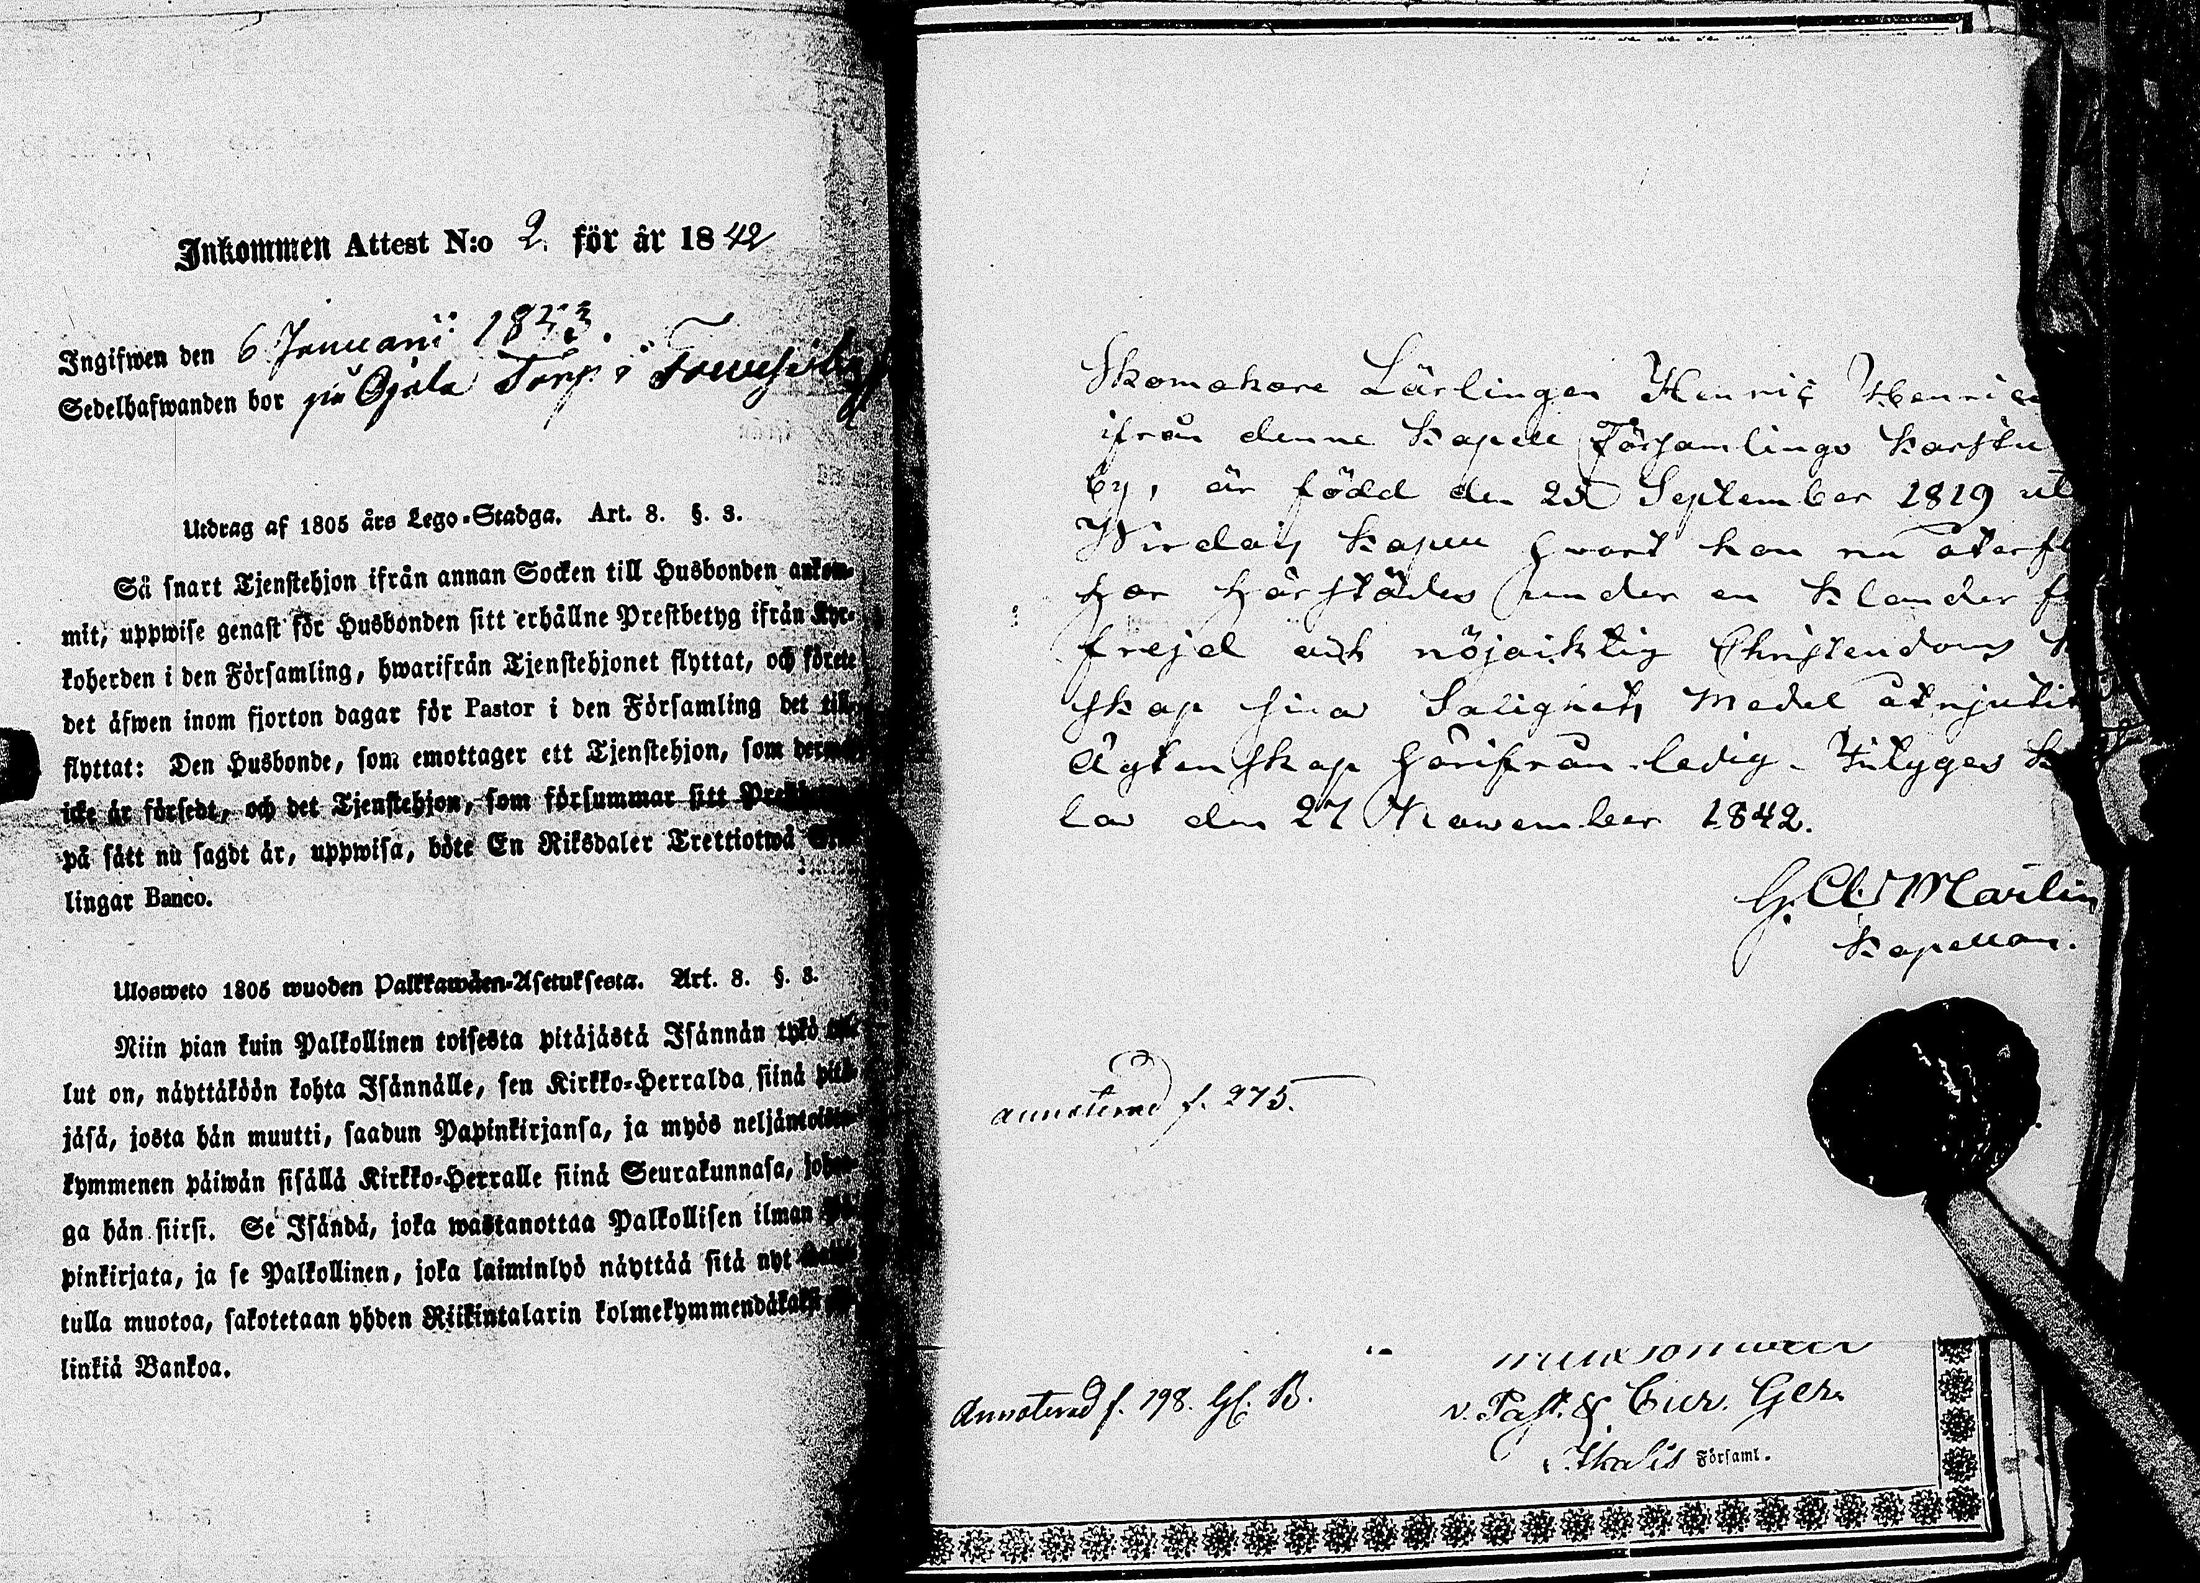 Inkommen Attest N:o 2. för år 1842
Ingifwen den 6 Januari 1843.
Sedelhafwanden bor på Ojala Torp i
Utdrag af 1805 års Lego-Stadga. Art. 8. §. 3.
Så snart Tjenstehjon ifrån annan Socken till Husbonden ankom-
mit, uppwise genast för Husbonden sitt erhållne Prestbetyg ifrån Kyr-
koherden i den Församling, hwarifrån Tjenstehjonet flyttat, och förete
det äfwen inom fjorton dagar för Pastor i den Församling det till-
flyttat: Den Husbonde, som emottager ett Tjenstehjon, som dermed
icke är försedt, och det Tjenstehjon, som försummar sitt
på sätt nu sagdt är, uppwisa, böte En Riksdaler Trettiotwå
lingar Banco.
Ulosweto 1805 wuoden Palkkawäen-Asetuksesta. Art. 8. §. 3.
Niin pian kuin Palkollinen toisesta pitäjästä Isännän tykö
lut on, näyttäköön kohta Isännälle, sen Kirkko-Herralda siinä pitä-
jäsä, josta hän muutti, saadun Papinkirjansa, ja myös neljäntoista-
kymmenen päiwän sisällä Kirkko-Herralle siinä Seurakunnasa, johon-
ga hän siirsi. Se Isändä, joka wastanottaa Palkollisen ilman Pa-
pinkirjata, ja se Palkollinen, joka laiminlyö näyttää sitä nyt
tulla muotoa, sakotetaan yhden Riikintalarin kolmekymmendäkaksi
linkiä Bankoa.
Skomakare Lärlingen Henric
ifrån denne Kapell Församlings Karstu
by, är född den September 1819
Wirdois Kapell hwart han nu
har härstädes under en Klander
frejd och nöjaktig Christendoms
skap sina Salighets Medel åtnjutit
Ägtenskap härifrån ledig. Intygas
la den 27 Nowember 1842.
Kapellan.
annoterad f. 275.
Annoterad f. 198. Gf. B.
v. Past. & Cur. Ger.
Ikalis Församl.